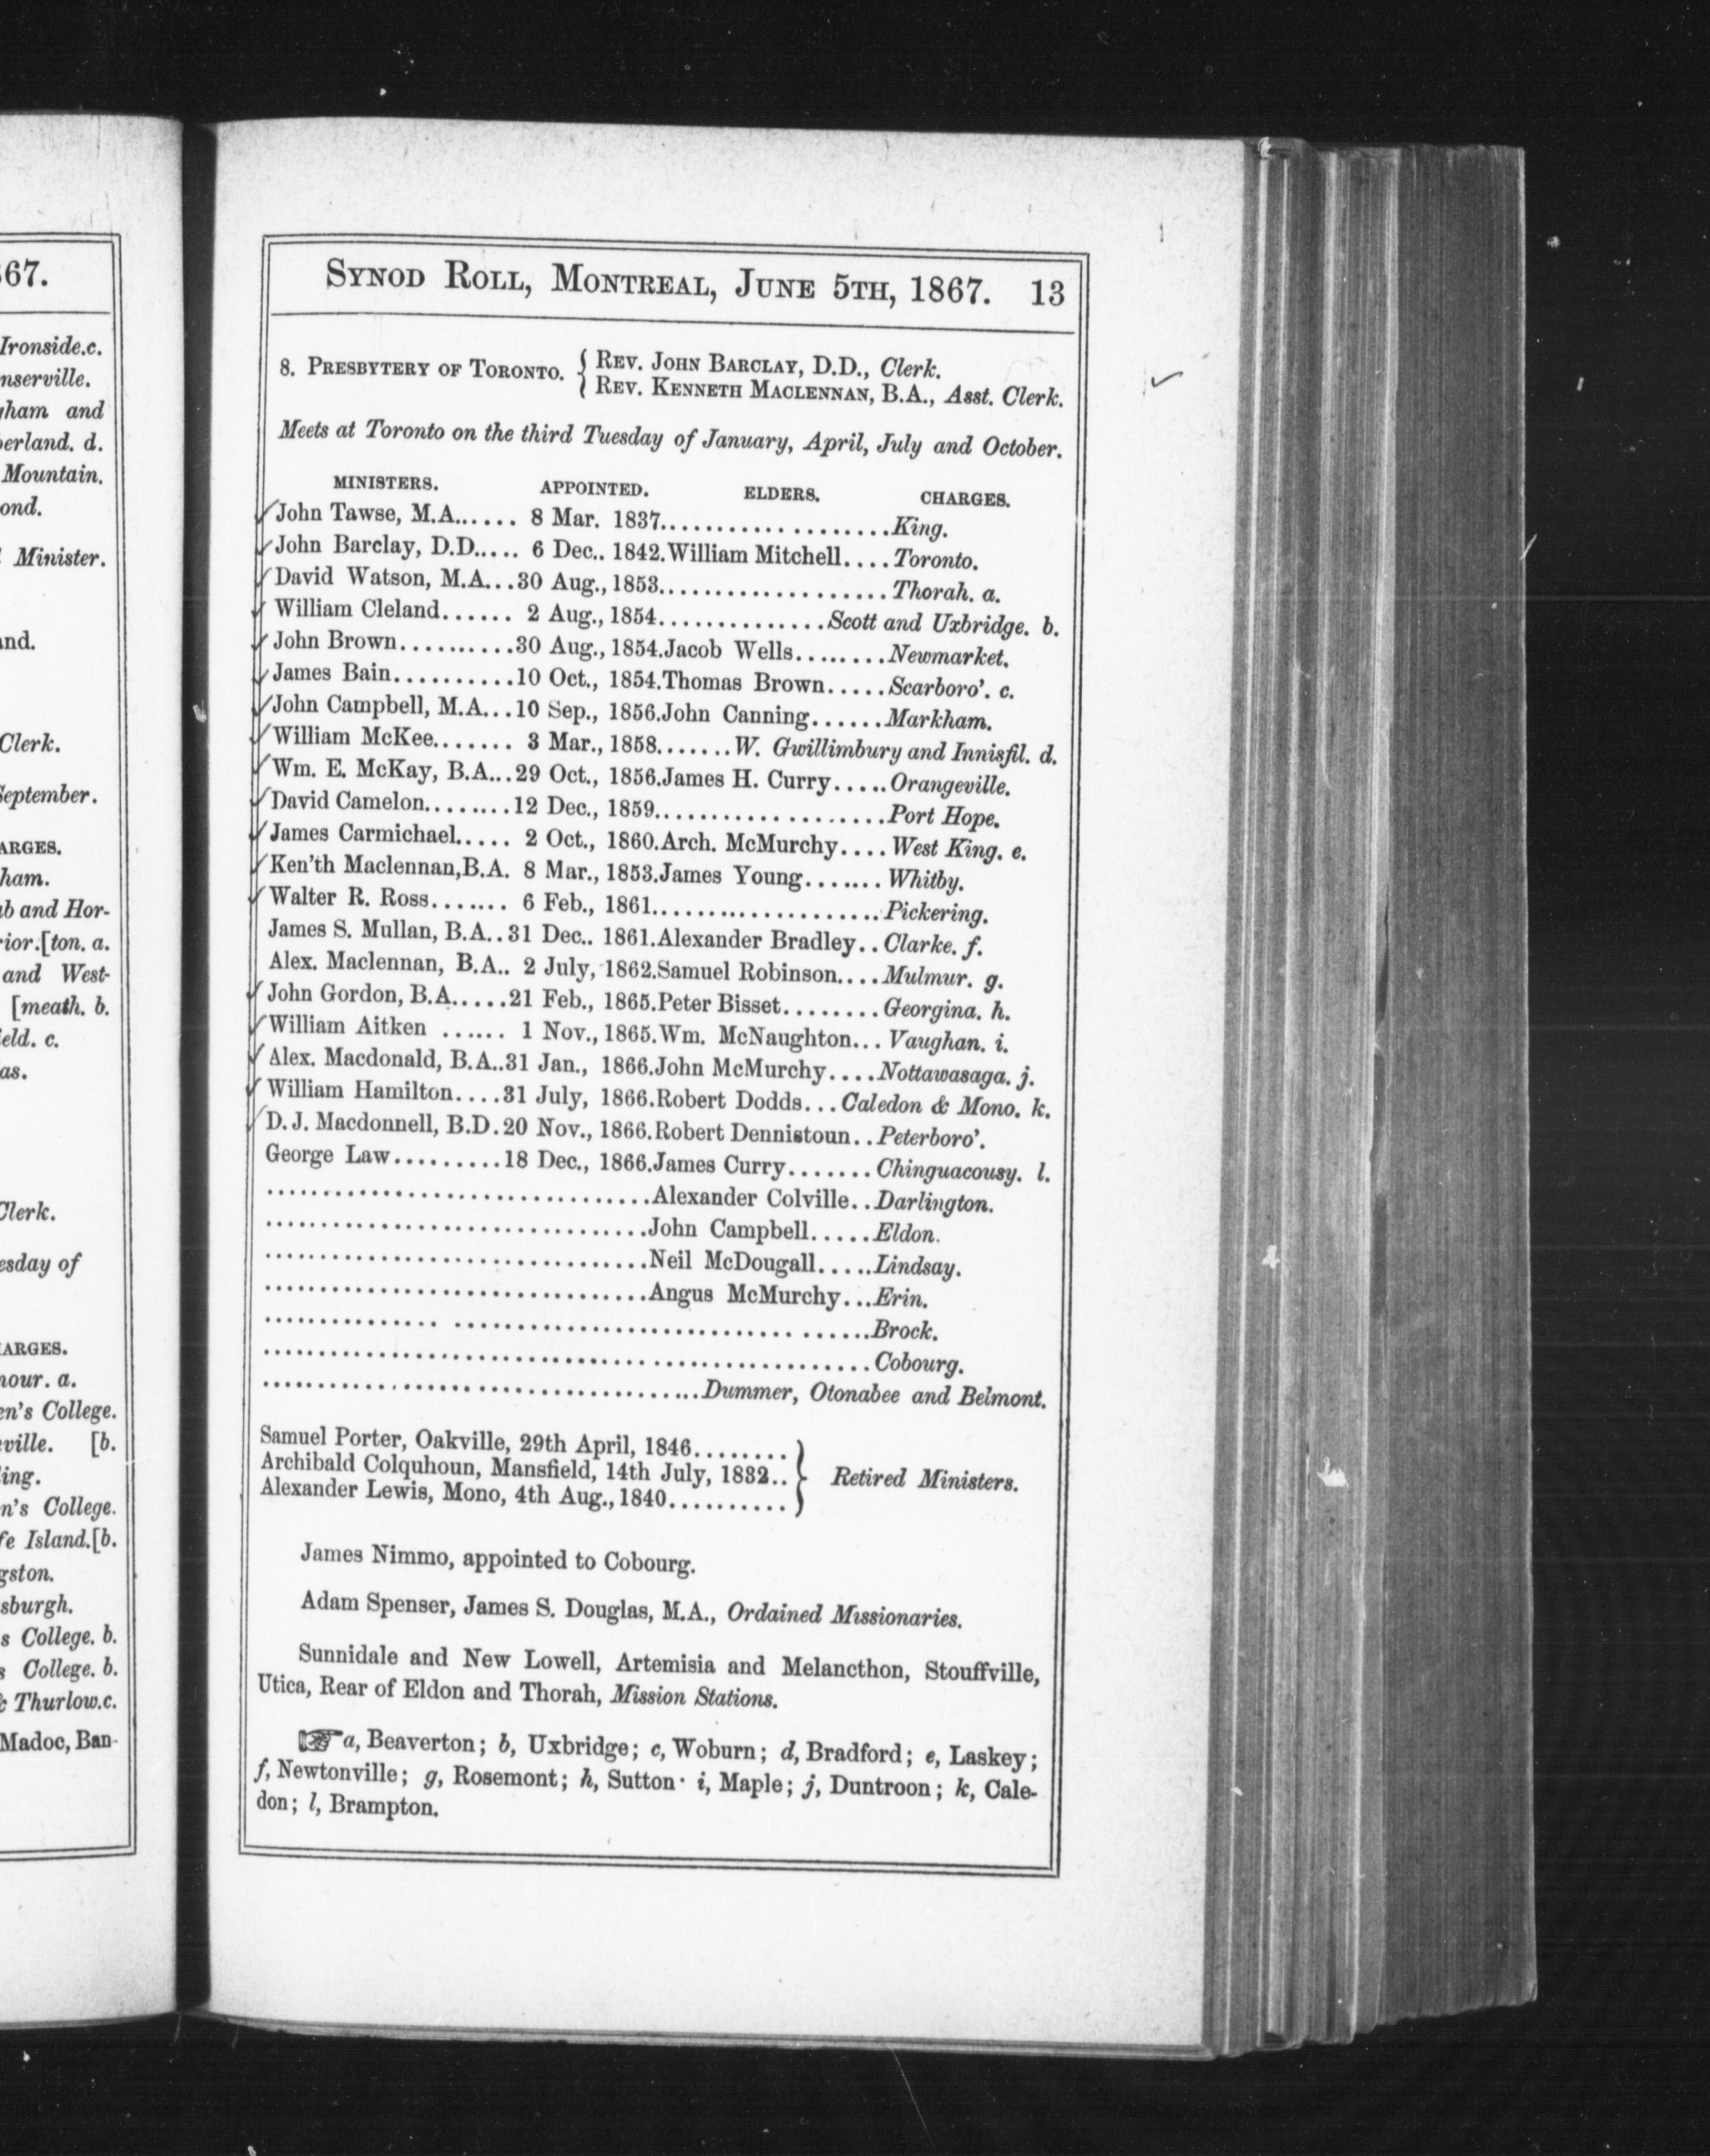 867.
Ironside.c.
nserville.
gham and
berland. d.
Mountain.
ond.
Minister.
and.
Clerk.
September.
ARGES.
ham.
ub and Hor-
rior.[ton. a.
and West-
[meath. b.
ield. c.
as.
Clerk.
esday of
ARGES.
mour. a.
en's College.
ville. [b.
ling.
n's College.
fe Island.[b.
gston.
sburgh.
s College. b.
s College. b.
& Thurlow.c.
Madoc, Ban-
SYNOD ROLL, MONTREAL, JUNE 5TH, 1867. 13
8. PRESBYTERY OF TORONTO. { REV. JOHN BARCLAY, D.D., Clerk.
{ REV. KENNETH MACLENNAN, B.A., Asst. Clerk.
Meets at Toronto on the third Tuesday of January, April, July and October.
MINISTERS. APPOINTED. ELDERS. CHARGES.
John Tawse, M.A...... 8 Mar. 1837....................King.
John Barclay, D.D..... 6 Dec.. 1842.William Mitchell....Toronto.
David Watson, M.A...30 Aug., 1853....................Thorah. a.
William Cleland...... 2 Aug., 1854...............Scott and Uxbridge. b.
John Brown..........30 Aug., 1854.Jacob Wells........Newmarket.
James Bain..........10 Oct., 1854.Thomas Brown.....Scarboro'. c.
John Campbell, M.A...10 Sep., 1856.John Canning......Markham.
William McKee....... 3 Mar., 1858.......W. Gwillimbury and Innisfil. d.
Wm. E. McKay, B.A...29 Oct., 1856.James H. Curry.....Orangeville.
David Camelon........12 Dec., 1859....................Port Hope.
James Carmichael..... 2 Oct., 1860.Arch. McMurchy....West King. e.
Ken'th Maclennan,B.A. 8 Mar., 1853.James Young.......Whitby.
Walter R. Ross....... 6 Feb., 1861....................Pickering.
James S. Mullan, B.A..31 Dec.. 1861.Alexander Bradley..Clarke. f.
Alex. Maclennan, B.A.. 2 July, 1862.Samuel Robinson....Mulmur. g.
John Gordon, B.A.....21 Feb., 1865.Peter Bisset........Georgina. h.
William Aitken ...... 1 Nov., 1865.Wm. McNaughton... Vaughan. i.
Alex. Macdonald, B.A..31 Jan., 1866.John McMurchy....Nottawasaga. j.
William Hamilton....31 July, 1866.Robert Dodds...Caledon & Mono. k.
D. J. Macdonnell, B.D.20 Nov., 1866.Robert Dennistoun..Peterboro'.
George Law.........18 Dec., 1866.James Curry.......Chinguacousy. l.
..................................Alexander Colville..Darlington.
..................................John Campbell.....Eldon.
..................................Neil McDougall.....Lindsay.
..................................Angus McMurchy...Erin.
................ ............................... ......Brock.
......................................................Cobourg.
.......................................Dummer, Otonabee and Belmont.
Samuel Porter, Oakville, 29th April, 1846........ }
Archibald Colquhoun, Mansfield, 14th July, 1832.. } Retired Ministers.
Alexander Lewis, Mono, 4th Aug., 1840.......... }
James Nimmo, appointed to Cobourg.
Adam Spenser, James S. Douglas, M.A., Ordained Missionaries.
Sunnidale and New Lowell, Artemisia and Melancthon, Stouffville,
Utica, Rear of Eldon and Thorah, Mission Stations.
☞ a, Beaverton; b, Uxbridge; c, Woburn; d, Bradford; e, Laskey;
f, Newtonville; g, Rosemont; h, Sutton· i, Maple; j, Duntroon; k, Cale-
don; l, Brampton.